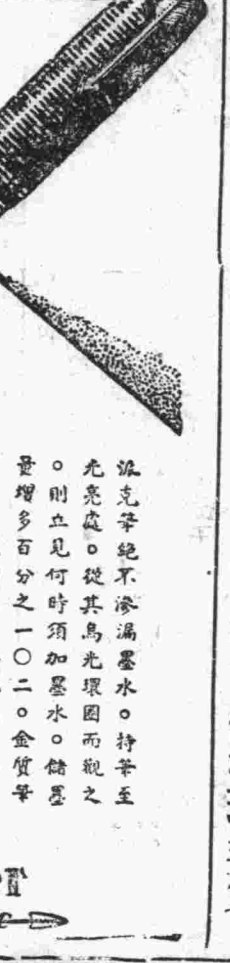 派克筆絕不滲漏墨水。持筆至
光亮處。從其烏光環圈而觀之
。則立見何時須加墨水。儲墨
量增多百分之一〇二。金質筆